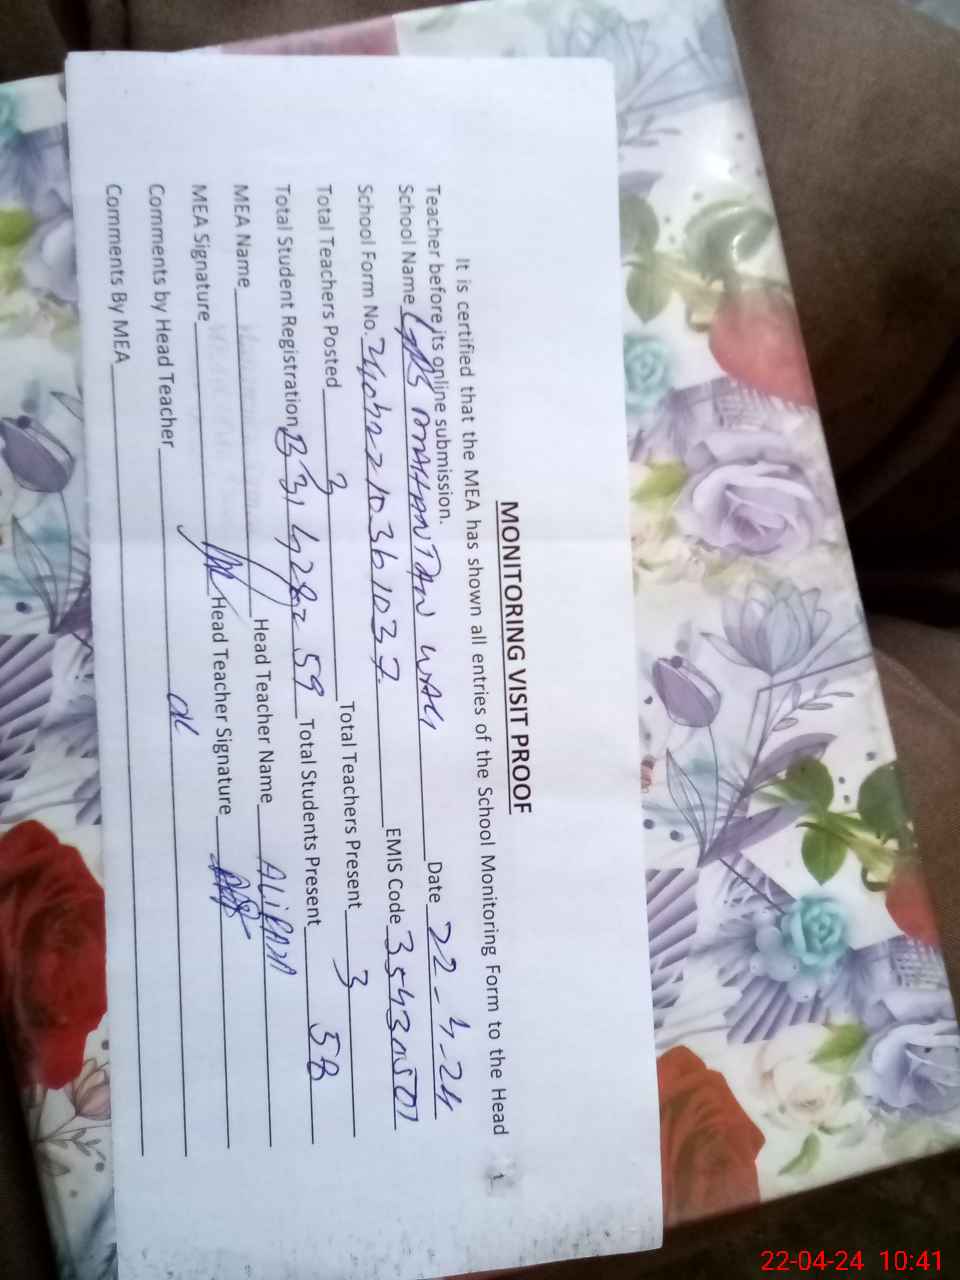 MONITORING VISIT PROOF
It is certified that the MEA has shown all entries of the School Monitoring Form to the Head
Teacher before its online submission.
School Name GPS MAHANTAN WALI Date 22-4-24
School Form No. EMIS Code 35430501
Total Teachers Posted 3 Total Teachers Present 3
Total Student Registration B=31 G=28=59 Total Students Present 58
MEA Name Head Teacher Name ALi RAZA
MEA Signature Head Teacher Signature
Comments by Head Teacher ok
Comments By MEA
22-04-24 10:41